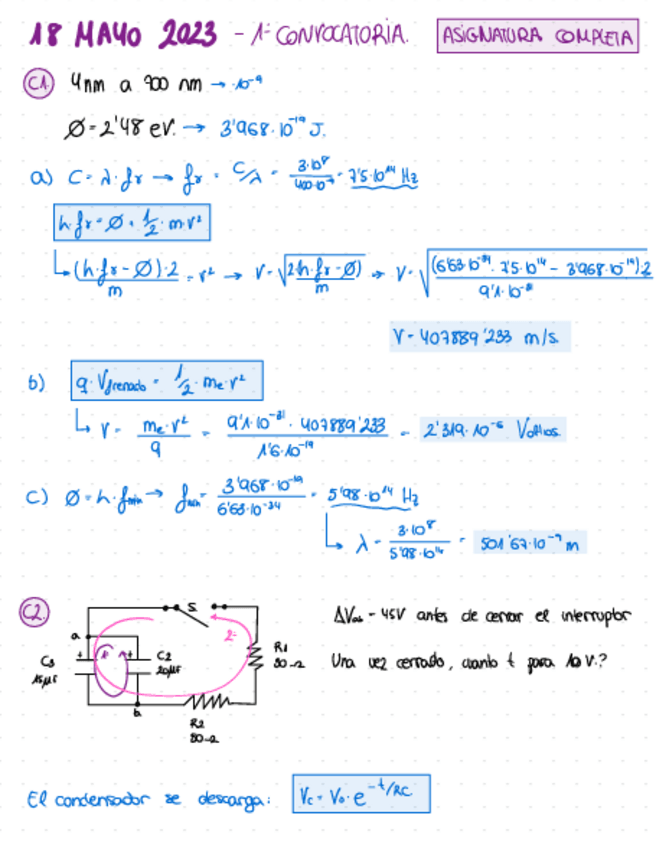 18 MAYO 2023 - 1ª CONVOCATORIA. ASIGNATURA COMPLETA
C1. 4nm a 700 nm → ·10⁻⁹
Ø = 2'48 eV. → 3'968·10⁻¹⁹ J.
a) C = λ·fr → fr = C/λ = 3·10⁸ / 400·10⁻⁹ = 7'5·10¹⁴ Hz
h·fr = Ø + 1/2·m·v²
(h·fr - Ø)·2 / m = v² → V = √(2(h·fr - Ø) / m) → V = √((6'63·10⁻³⁴ · 7'5·10¹⁴ - 3'968·10⁻¹⁹)·2 / 9'1·10⁻³¹)
V = 407889'233 m/s.
b) q·Vfrenado = 1/2·me·v²
V = me·v² / q = 9'1·10⁻³¹ · 407889'233 / 1'6·10⁻¹⁹ = 2'319·10⁻⁶ Voltios.
c) Ø = h·fmin → fmin = 3'968·10⁻¹⁹ / 6'63·10⁻³⁴ = 5'98·10¹⁴ Hz
λ = 3·10⁸ / 5'98·10¹⁴ = 501'67·10⁻⁹ m
C2. S. ΔVab = 45V antes de cerrar el interruptor
a 2ª R1
C3 + + C2 30 Ω Una vez cerrado, cuanto t para 10 V.?
15μF 20μF
b
R2
50 Ω
El condensador se descarga: Vc = V₀·e^(-t/RC)